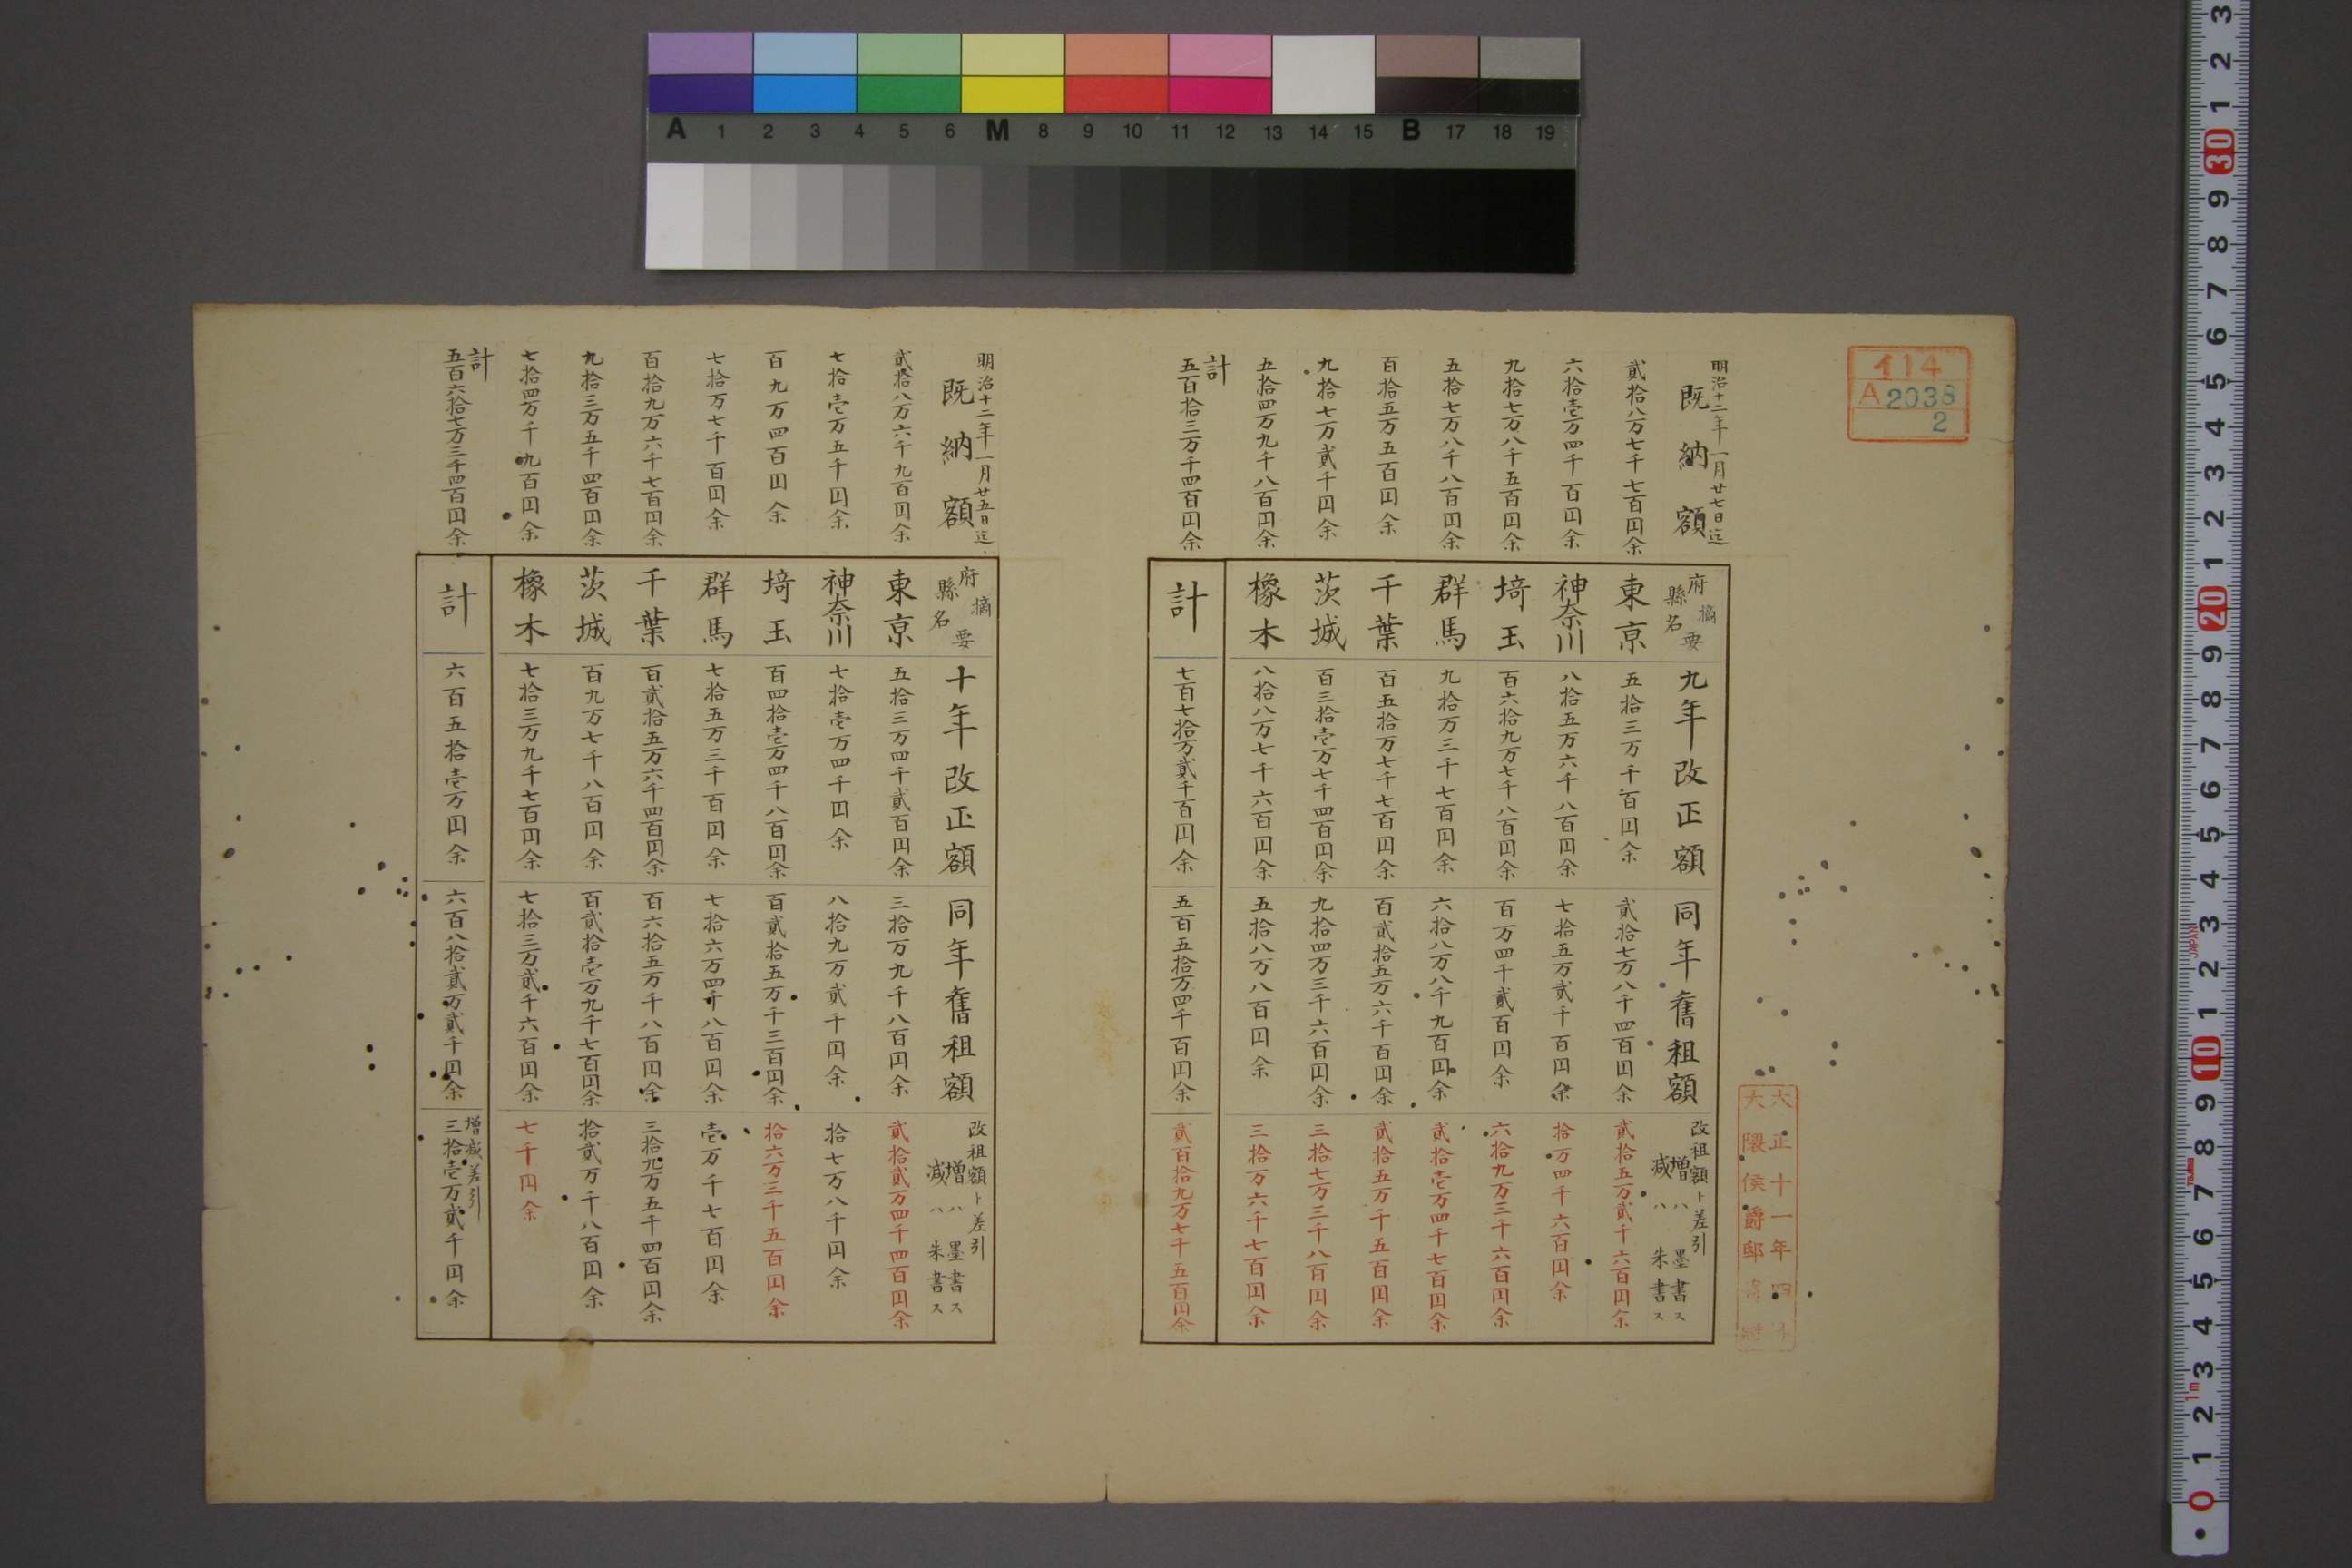 114
A 2038
2
大正十一年四月
大隈侯爵邸寄贈
明治十二年一月廿七日迄
既納額
貳拾八万七千七百円余
六拾壱万四千百円余
九拾七万八千五百円余
五拾七万八千八百円余
百拾五万五百円余
九拾七万貳千円余
五拾四万九千八百円余
計
五百拾三万千四百円余
摘要
府縣名
九年改正額
同年舊租額
改租額ト差引
増ハ墨書ス
減ハ朱書ス
東京
五拾三万千百円余
貳拾七万八千四百円余
貳拾五万貳千六百円余
神奈川
八拾五万六千八百円余
七拾五万貳千百円余
拾万四千六百円余
埼玉
百六拾九万七千八百円余
百万四千貳百円余
六拾九万三千六百円余
群馬
九拾万三千七百円余
六拾八万八千九百円余
貳拾壱万四千七百円余
千葉
百五拾万七千七百円余
百貳拾五万六千百円余
貳拾五万千五百円余
茨城
百三拾壱万七千四百円余
九拾四万三千六百円余
三拾七万三千八百円余
橡木
八拾八万七千六百円余
五拾八万八百円余
三拾万六千七百円余
計
七百七拾万貳千百円余
五百五拾万四千百円余
貳百拾九万七千五百円余
明治十二年一月廿五日迄
既納額
貳拾八万六千九百円余
七拾壱万五千円余
百九万四百円余
七拾万七千百円余
百拾九万六千七百円余
九拾三万五千四百円余
七拾四万千九百円余
計
五百六拾七万三千四百円余
摘要
府縣名
十年改正額
同年舊租額
改租額ト差引
増ハ墨書ス
減ハ朱書ス
東京
五拾三万四千貳百円余
三拾万九千八百円余
貳拾貳万四千四百円余
神奈川
七拾壱万四千円余
八拾九万貳千円余
拾七万八千円余
埼玉
百四拾壱万四千八百円余
百貳拾五万千三百円余
拾六万三千五百円余
群馬
七拾五万三千百円余
七拾六万四千八百円余
壱万千七百円余
千葉
百貳拾五万六千四百円余
百六拾五万千八百円余
三拾九万五千四百円余
茨城
百九万七千八百円余
百貳拾壱万九千七百円余
拾貳万千八百円余
橡木
七拾三万九千七百円余
七拾三万貳千六百円余
七千円余
計
六百五拾壱万円余
六百八拾貳万貳千円余
増減差引
三拾壱万貳千円余